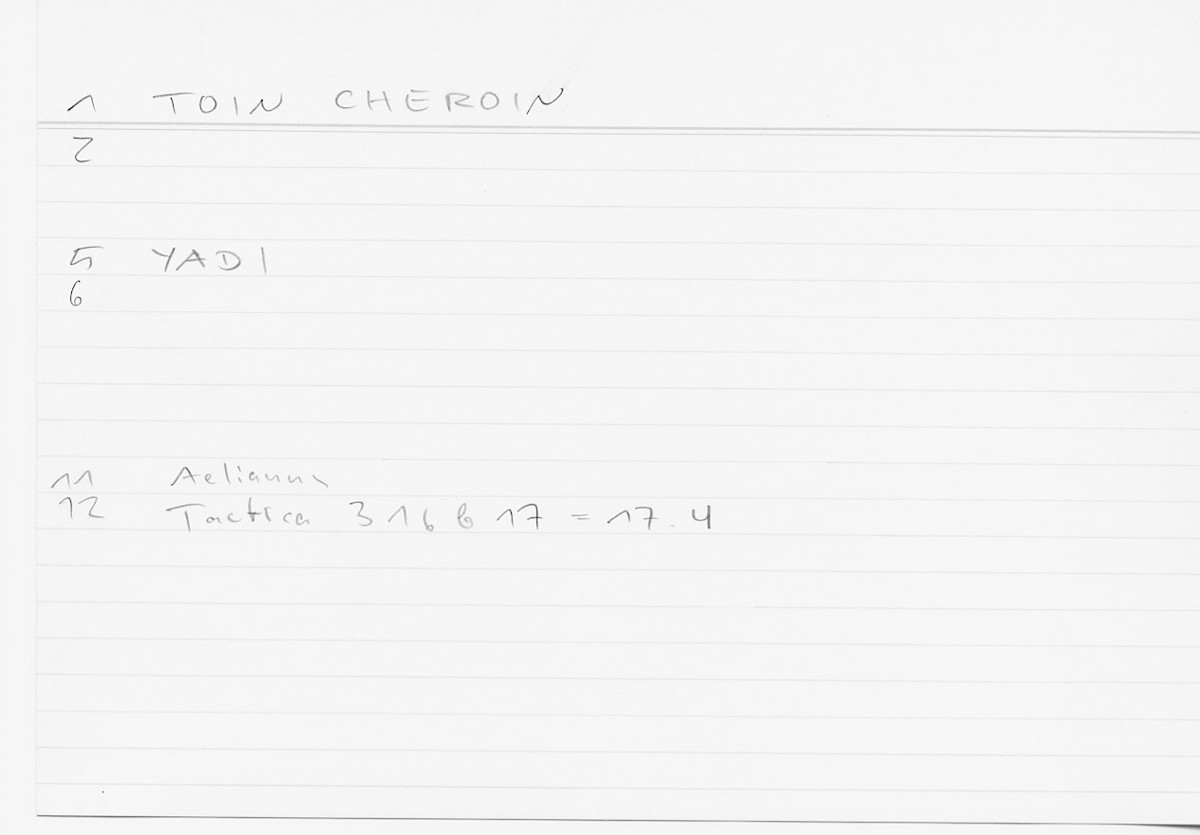 1 TOIN CHEROIN
2
5 YADI
6
11 Aelianus
12 Tactica 3 16 b 17 = 17.4